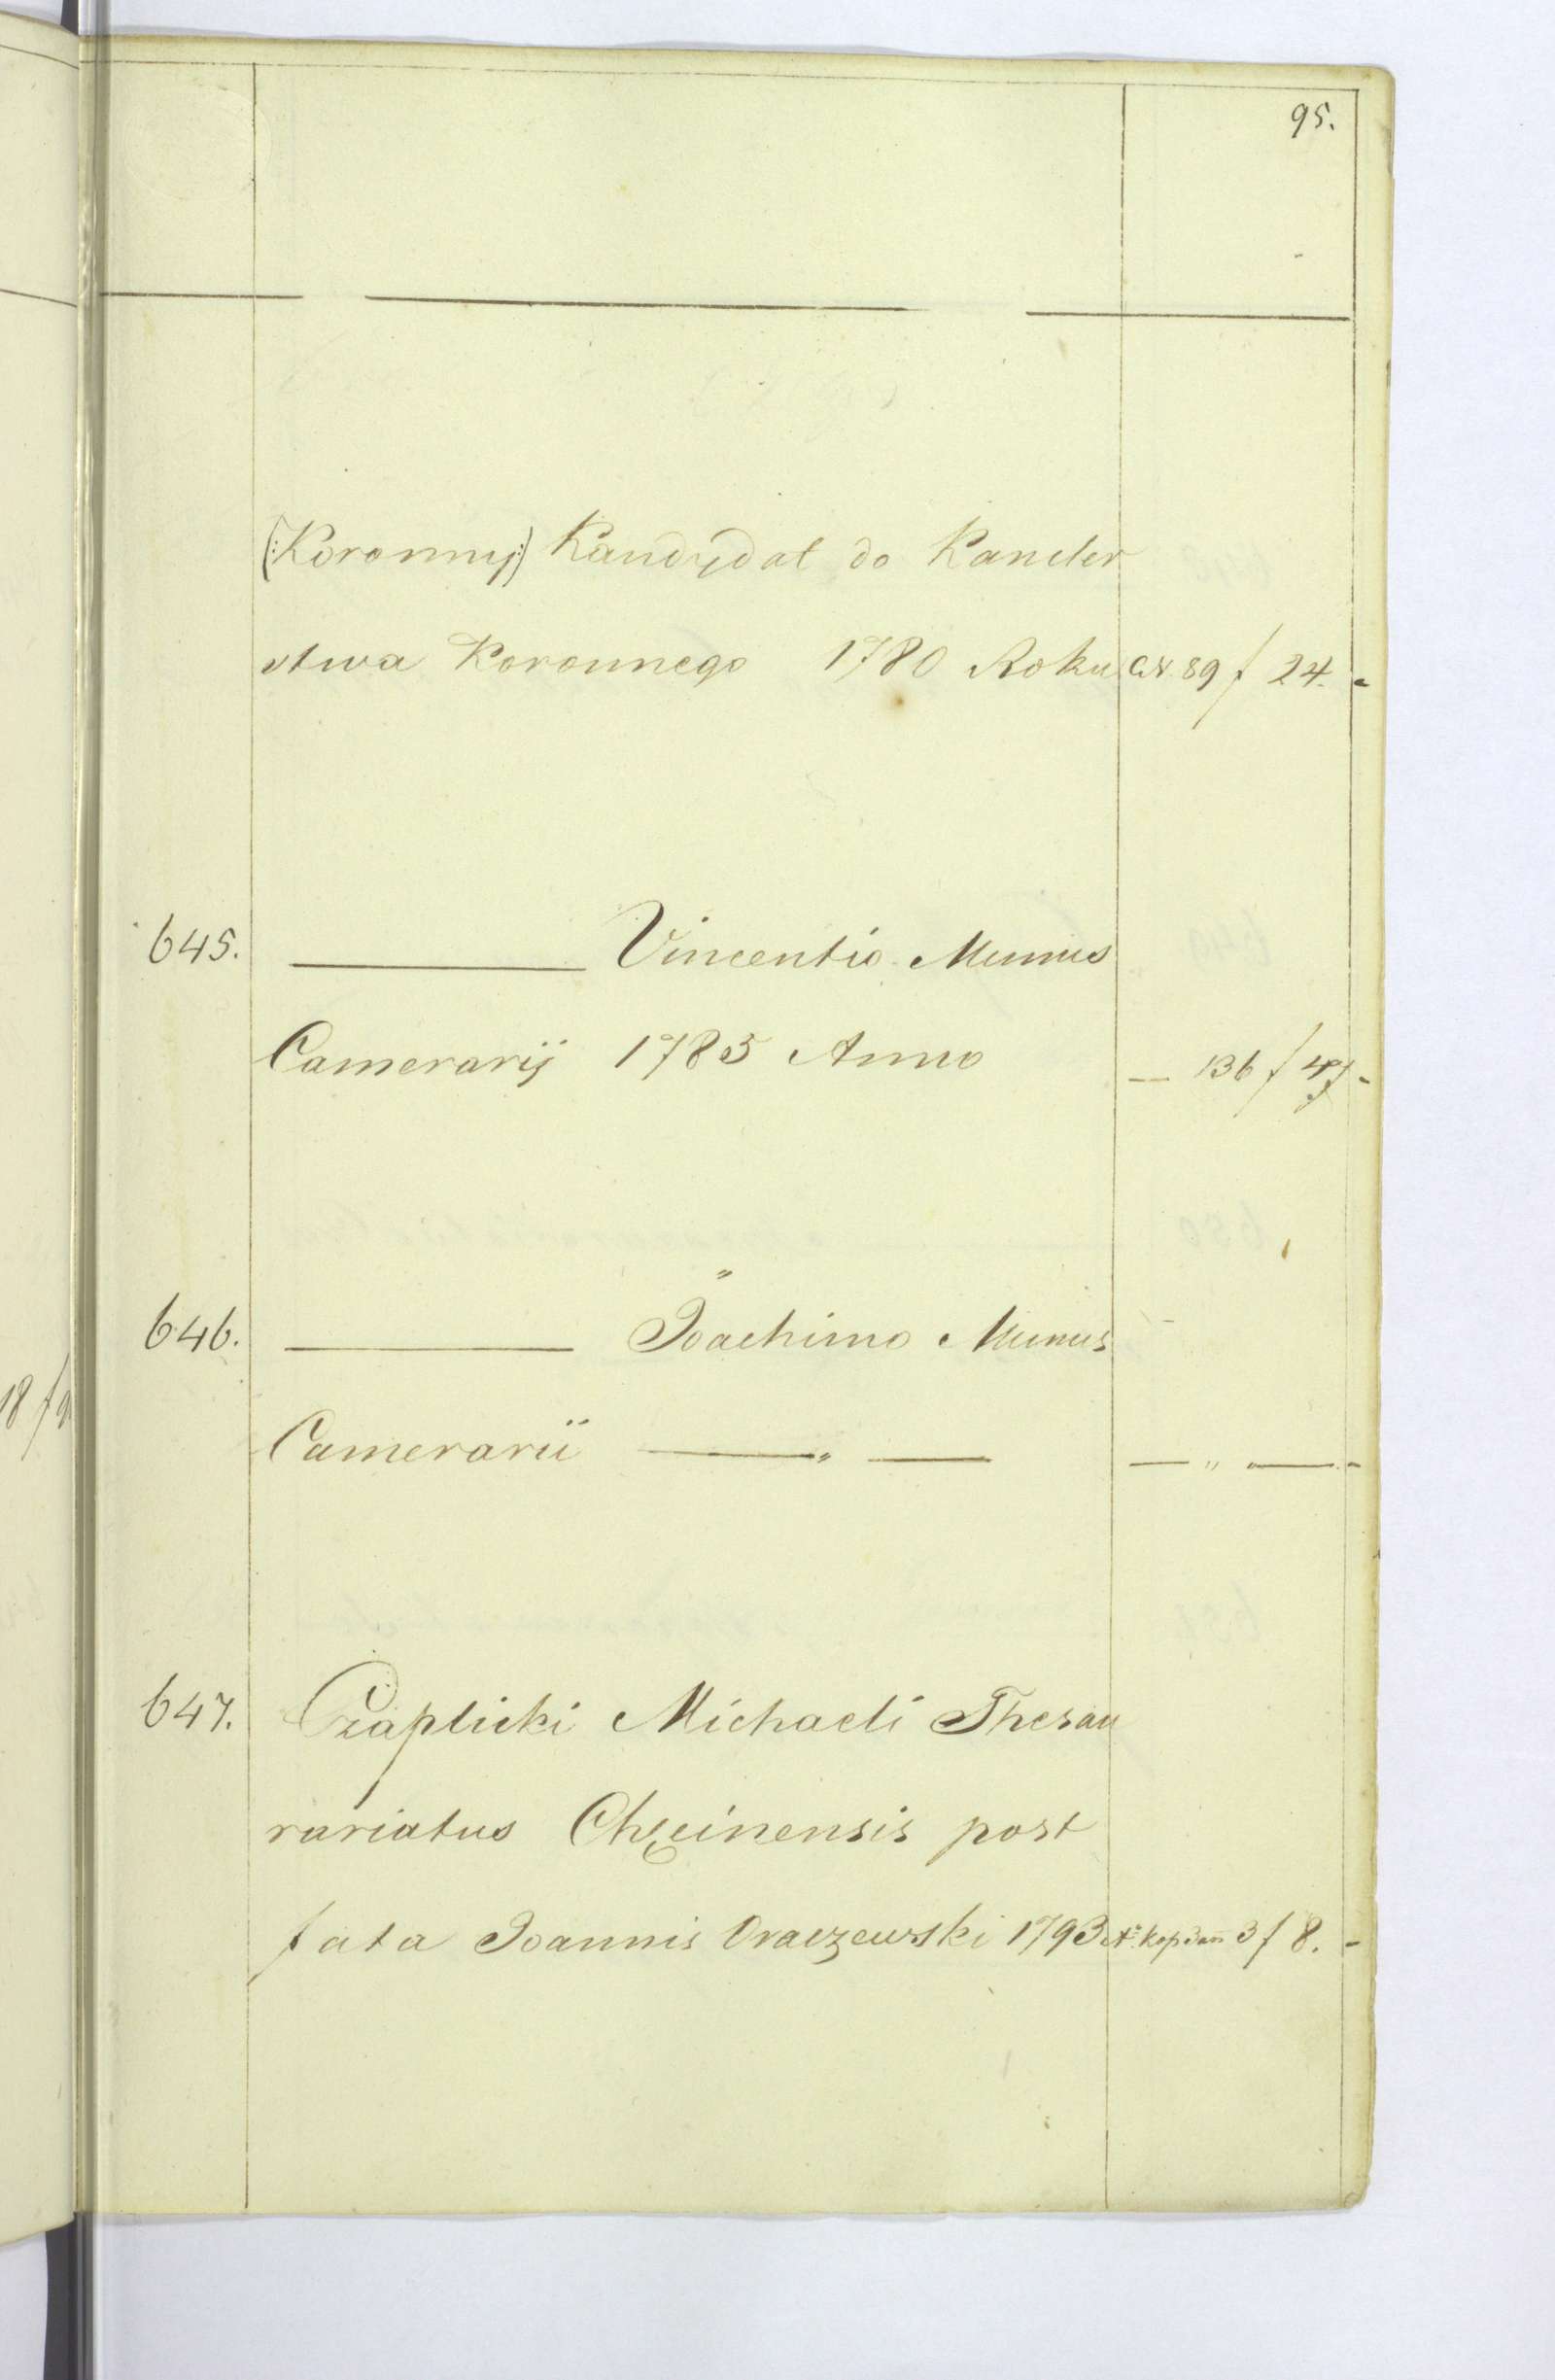 95.
(:Koronny:) Kandydat do Kancler
stwa Koronnego 1780 Roku 89 f 24.
645. ——— Vincentio Munus
Camerarij 1785 Anno — 136 f 47
646. ——— Joachimo Munus
Camerarii ——„—— —„—
647. Czaplicki Michaeli Thesau
rariatus Chęcinensis post
fata Joannis Oraczewski 1793 3 f 8.
18 f